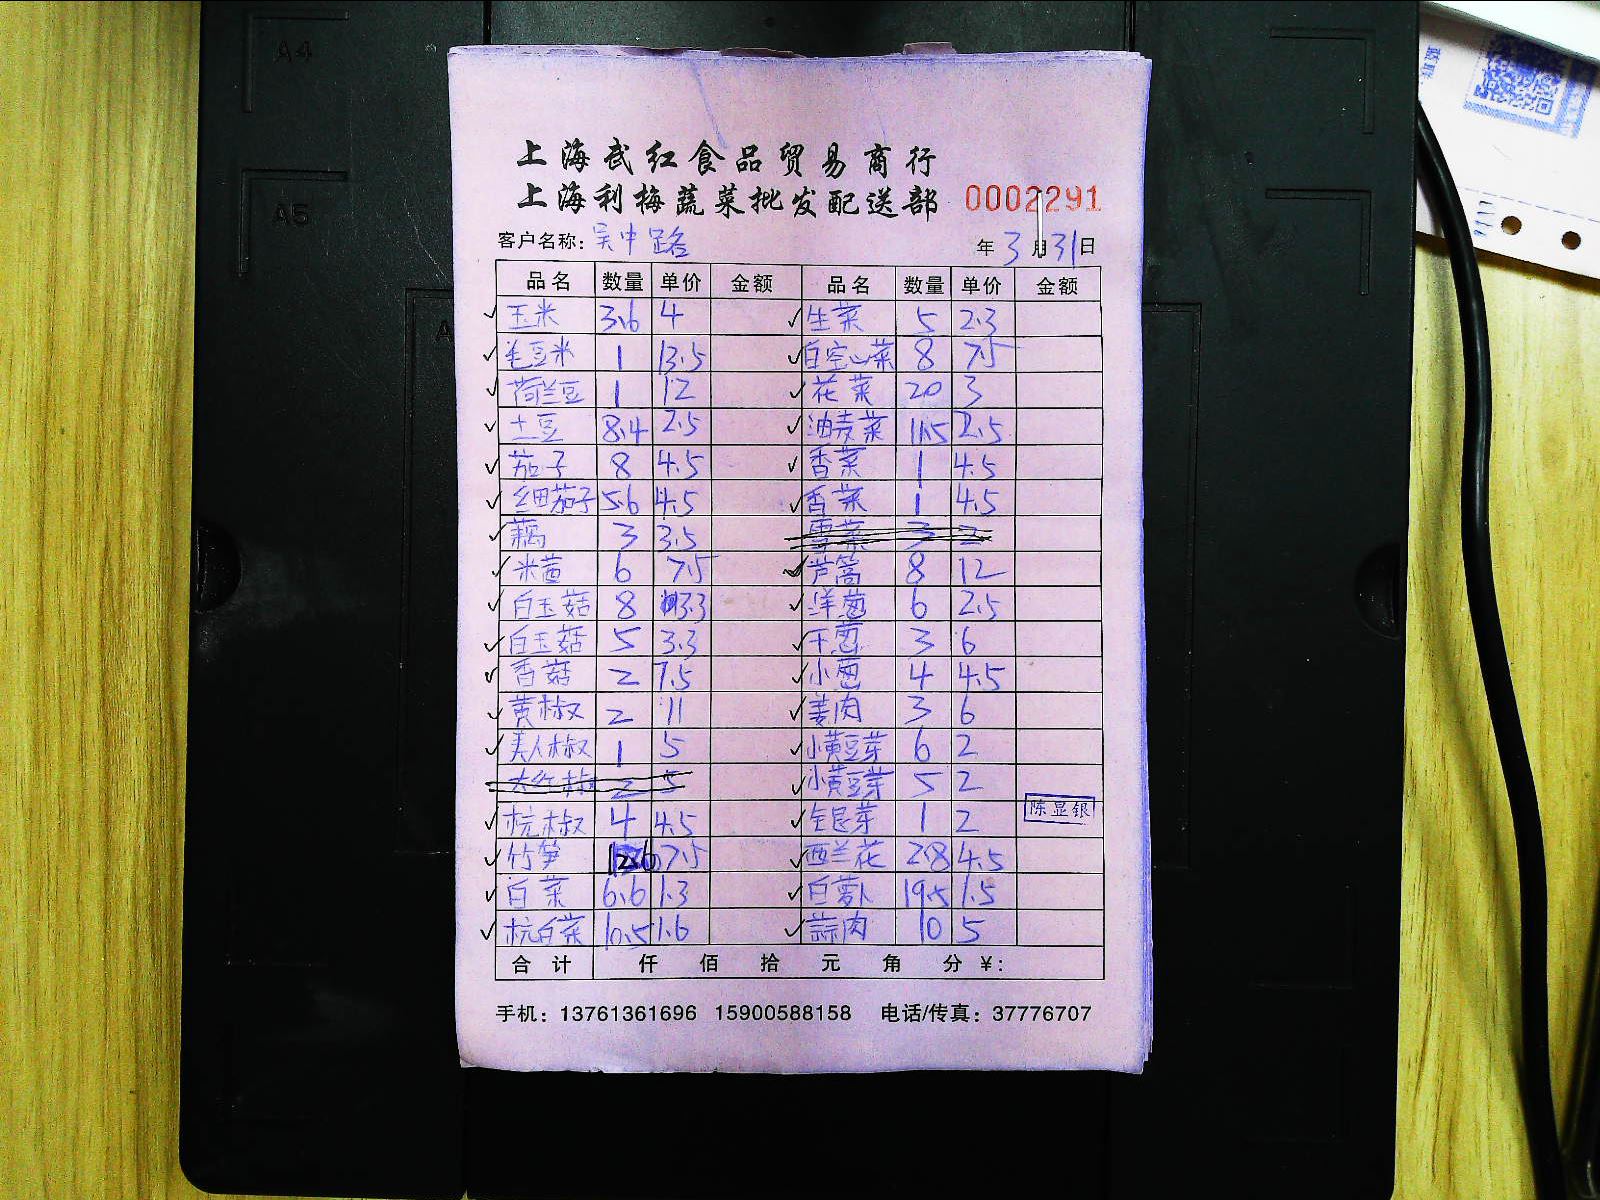 上海武红食品贸易商行
上海利梅蔬菜批发配送部 0002291
客户名称: 吴中路 年 3 月 31 日
品名 数量 单价 金额 品名 数量 单价 金额
玉米 3.6 4 生菜 5 2.3
毛豆米 1 13.5 白空心菜 8 7.5
荷兰豆 1 12 花菜 20 3
土豆 8.4 2.5 油麦菜 11.5 2.5
茄子 8 4.5 香菜 1 4.5
细茄子 5.6 4.5 香菜 1 4.5
藕 3 3.5 雪菜 3 2
米茜 6 7.5 芦蒿 8 12
白玉菇 8 3.3 洋葱 6 2.5
白玉菇 5 3.3 干葱 3 6
香菇 2 7.5 小葱 4 4.5
黄椒 2 11 姜肉 3 6
美人椒 1 5 小黄豆芽 6 2
大红椒 2 5 小黄豆芽 5 2
杭椒 4 4.5 1 2 陈显银
竹笋 12.6 7.5 西兰花 2.8 4.5
白菜 6.6 1.3 白萝卜 19.5 1.5
杭白菜 10.5 1.6 蒜肉 10 5
合计 仟 佰 拾 元 角 分 ¥:
手机: 13761361696 15900588158 电话/传真: 37776707
A4
A5